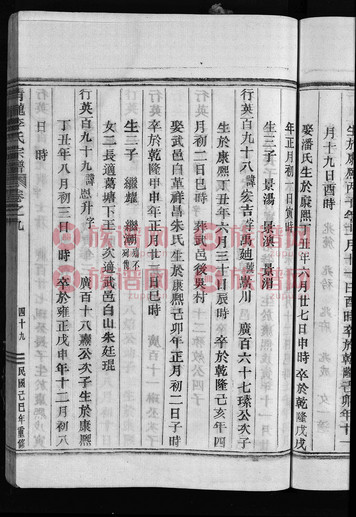 生於康熙丙子年
月十九日酉時
娶潘氏生於康熙丁丑年六月廿七日申時 卒於乾隆戊戌
年正月初一日寅時
生三子 景湯 景濱 景湄
行英百九十八 諱宏吉字萬廸號嵩川 廣百六十七瑧公次子
生於康熙丁丑年六月初三日辰時 卒於乾隆己亥年四
月初二日巳時 葬武邑後吳村
娶武邑白革薛昌朱氏生於康熙己卯年正月初二日子時
卒於乾隆甲申年正月廿一日巳時
生三子 繼耀 繼潮
女二長適葛塘下王 次適武邑白山朱廷琨
行英百九十九 諱恩升字 廣百十八熹公次子生於康熙
丁丑年八月初三日 時 卒於雍正戊申年十二月初八
日 時
青龍李氏宗譜 卷之九 四十九 民國己巳年重修
族譜網